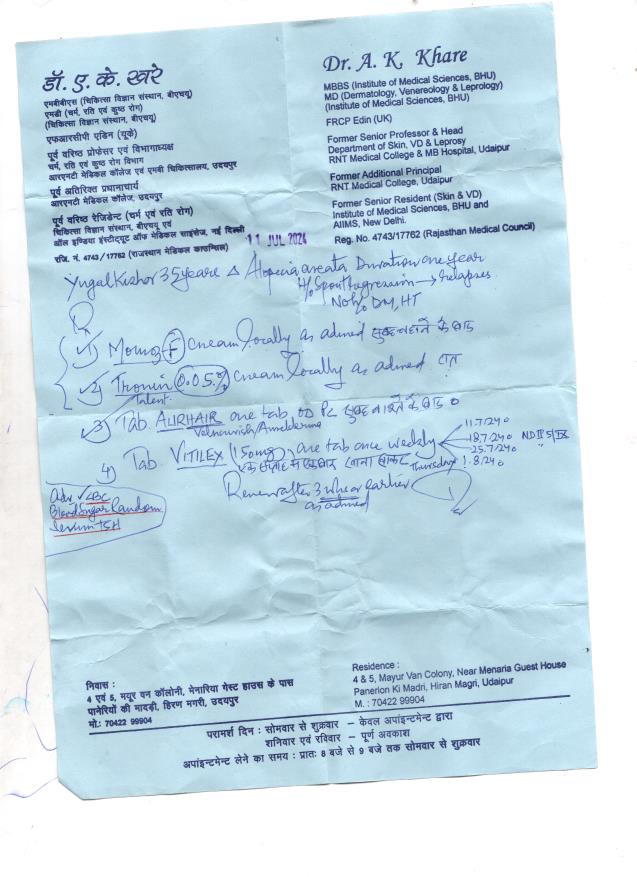 डॉ. ए. के. खरे
एमबीबीएस (चिकित्सा विज्ञान संस्थान, बीएचयू)
एमडी (चर्म, रति एवं कुष्ठ रोग)
(चिकित्सा विज्ञान संस्थान, बीएचयू)
एफआरसीपी एडिन (यूके)
पूर्व वरिष्ठ प्रोफेसर एवं विभागाध्यक्ष
चर्म, रति एवं कुष्ठ रोग विभाग
आरएनटी मेडिकल कॉलेज एवं एमबी चिकित्सालय, उदयपुर
पूर्व अतिरिक्त प्रधानाचार्य
आरएनटी मेडिकल कॉलेज, उदयपुर
पूर्व वरिष्ठ रेजिडेन्ट (चर्म एवं रति रोग)
चिकित्सा विज्ञान संस्थान, बीएचयू एवं
ऑल इण्डिया इंस्टीट्यूट ऑफ मेडिकल साइंसेज, नई दिल्ली
रजि. नं. 4743 / 17762 (राजस्थान मेडिकल काउन्सिल)
Dr. A. K. Khare
MBBS (Institute of Medical Sciences, BHU)
MD (Dermatology, Venereology & Leprology)
(Institute of Medical Sciences, BHU)
FRCP Edin (UK)
Former Senior Professor & Head
Department of Skin, VD & Leprosy
RNT Medical College & MB Hospital, Udaipur
Former Additional Principal
RNT Medical College, Udaipur
Former Senior Resident (Skin & VD)
Institute of Medical Sciences, BHU and
AIIMS, New Delhi.
Reg. No. 4743/17762 (Rajasthan Medical Council)
11 JUL 2024
Yugal Kishor 35 years Δ Alopecia areata Duration one year
H/o Spont regression → relapses
No h/o DM, HT
1) Momoz F cream locally as advised
2) Tronin 0.05% cream locally as advised रात
3) Tab. AURHAIR one tab OD PC सुबह
4) Tab VITILEX (15mg) one tab once weekly
11.7.24
18.7.24
25.7.24
Thursday 1.8.24
Renew after 3 wk or earlier
as advised
Adv ✓ CBC
Blood Sugar Random
Serum TSH
निवास :
4 एवं 5, मयूर वन कॉलोनी, मेनारिया गेस्ट हाउस के पास
पानेरियों की मादड़ी, हिरण मगरी, उदयपुर
मो.: 70422 99904
Residence :
4 & 5, Mayur Van Colony, Near Menaria Guest House
Panerion Ki Madri, Hiran Magri, Udaipur
M. : 70422 99904
परामर्श दिन : सोमवार से शुक्रवार – केवल अपांइन्टमेन्ट द्वारा
शनिवार एवं रविवार – पूर्ण अवकाश
अपांइन्टमेन्ट लेने का समय : प्रातः 8 बजे से 9 बजे तक सोमवार से शुक्रवार